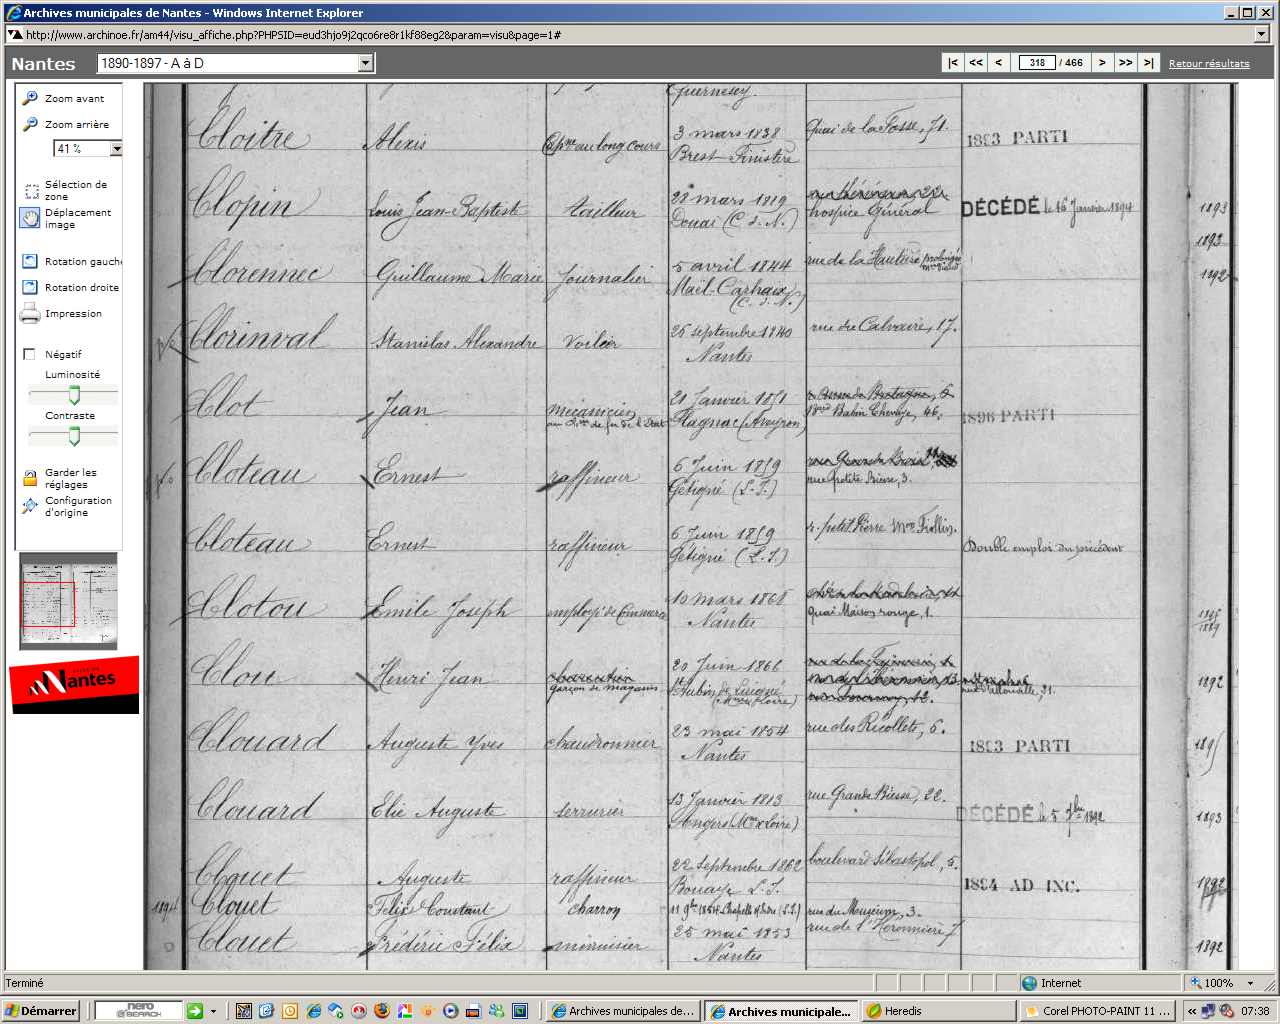 Archives municipales de Nantes - Windows Internet Explorer
http://www.archinoe.fr/am44/visu_affiche.php?PHPSID=eud3hjo9j2qco6re8r1kf88eg2&param=visu&page=1#
Nantes 1890-1897 - A à D |< << < 318 / 466 > >> >| Retour résultats
Zoom avant
Zoom arrière
41 %
Sélection de
zone
Déplacement
image
Rotation gauche
Rotation droite
Impression
Négatif
Luminosité
Contraste
Garder les
réglages
Configuration
d'origine
Nantes
Guernesey.
Cloitre Alexis Cap.ne au long cours 3 mars 1838 Quai de la Fosse, 71. 1893 PARTI
Brest Finistère
Clopin Louis Jean-Baptiste tailleur 28 mars 1819 hospice Général DÉCÉDÉ le 16 Janvier 1894 1893
Douai (C. d. N.)
1893
Clorennec Guillaume Marie Journalier 5 avril 1844 rue de la Hautière prolongée 1892
Maël-Carhaix
(C. d. N.)
Clorinval Stanislas Alexandre Voilier 25 septembre 1840 rue du Calvaire, 17.
Nantes
Clot Jean mécanicien 21 Janvier 1851 1896 PARTI
au ch.ins de fer de l'Etat Flagnac (Aveyron) B.ard Babin Chevaye, 46.
Cloteau Ernest raffineur 6 Juin 1859
Gétigné (L. I.) rue petite Biesse, 3.
Cloteau Ernest raffineur 6 Juin 1859 r. petit Pierre M.on Fiollin.
Gétigné (L. I.) Double emploi du précédent
Clotou Emile Joseph employé de Commerce 10 mars 1868 quai Maison rouge, 1.
Nantes
Clou Henri Jean garçon de magasin 20 Juin 1866 1892
St Aubin de Luigné
(Maine & Loire)
Clouard Auguste Yves chaudronnier 23 mai 1854 rue des Récollets, 6. 1893 PARTI 1895
Nantes
Clouard Elie Auguste serrurier 13 Janvier 1813 rue Grande Biesse, 22. DÉCÉDÉ le 5 7bre 1892 1893
Angers (M.ne & Loire)
Clouet Auguste raffineur 22 septembre 1862 boulevard Sébastopol, 5. 1894 AD INC. 1892
Bouaye L. I.
1894 Clouet Félix Constant charron 11 9bre 1854 Chapelle s/ Erdre (L. I.) rue du Muséum, 3.
Clouet Frédéric Félix menuisier 25 mai 1853 rue de l'Héronnière 7 1892
Nantes
Terminé Internet 100%
Démarrer nero SEARCH Archives municipales de... Archives municipale... Heredis Corel PHOTO-PAINT 11 ... 07:38